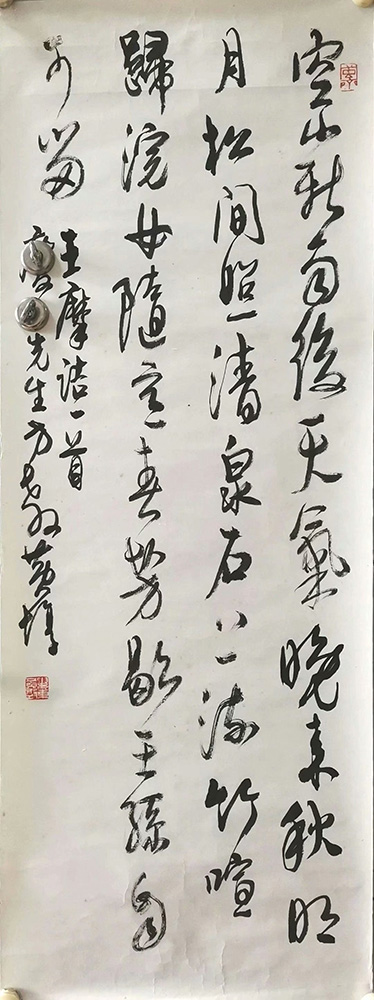 空山新雨後天氣晚來秋明
月松間照清泉石上流竹喧
歸浣女隨意春芳歇王孫自
可留
王摩詰一首
先生方家教黃惇